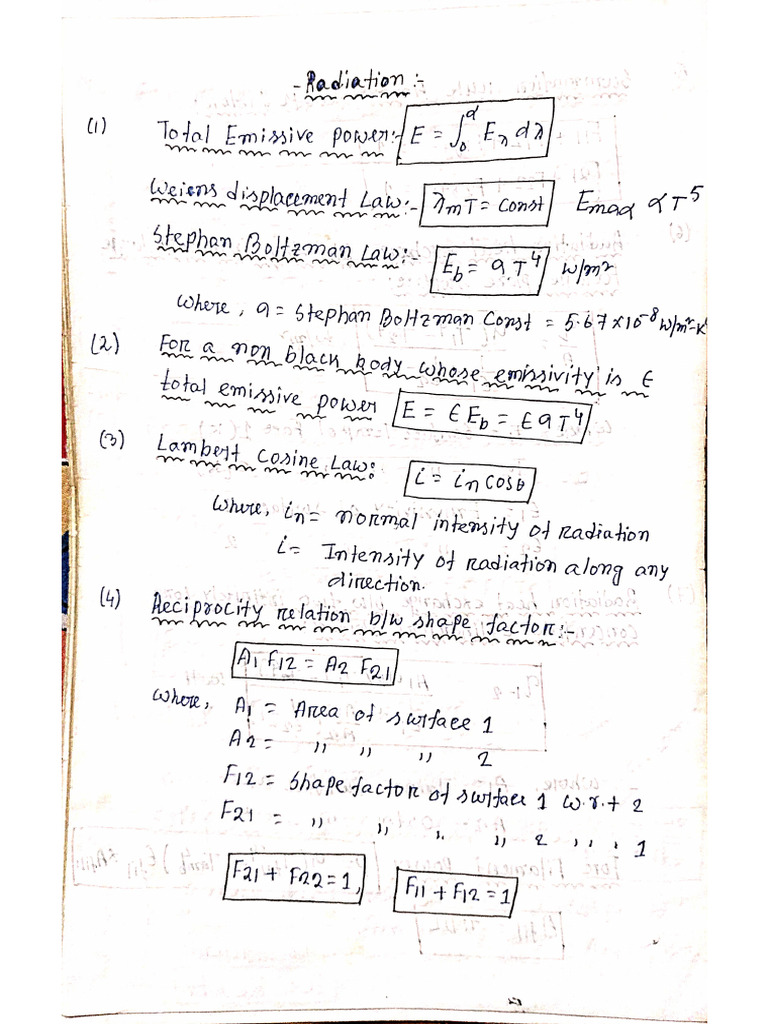 - Radiation :-
(1) Total Emissive power:- E = ∫₀^α E_λ dλ
Weiens displacement Law:- λmT = Const Emax ∝ T⁵
Stephan Boltzman Law:- E_b = σ.T⁴ W/m²
where, σ = Stephan Boltzman Const = 5.67×10⁻⁸ W/m²-K
(2) For a non black body whose emissivity is ϵ
total emissive power E = ϵ E_b = ϵ σ T⁴
(3) Lambert Cosine Law: i = in cosθ
where, in = normal intensity of radiation
i = Intensity of radiation along any
direction.
(4) Reciprocity relation b/w shape factor:-
A1 F12 = A2 F21
where, A1 = Area of surface 1
A2 = ,, ,, ,, 2
F12 = shape factor of surface 1 w.r.t 2
F21 = ,, ,, ,, ,, 2 ,,, 1
F21 + F22 = 1, F11 + F12 = 1